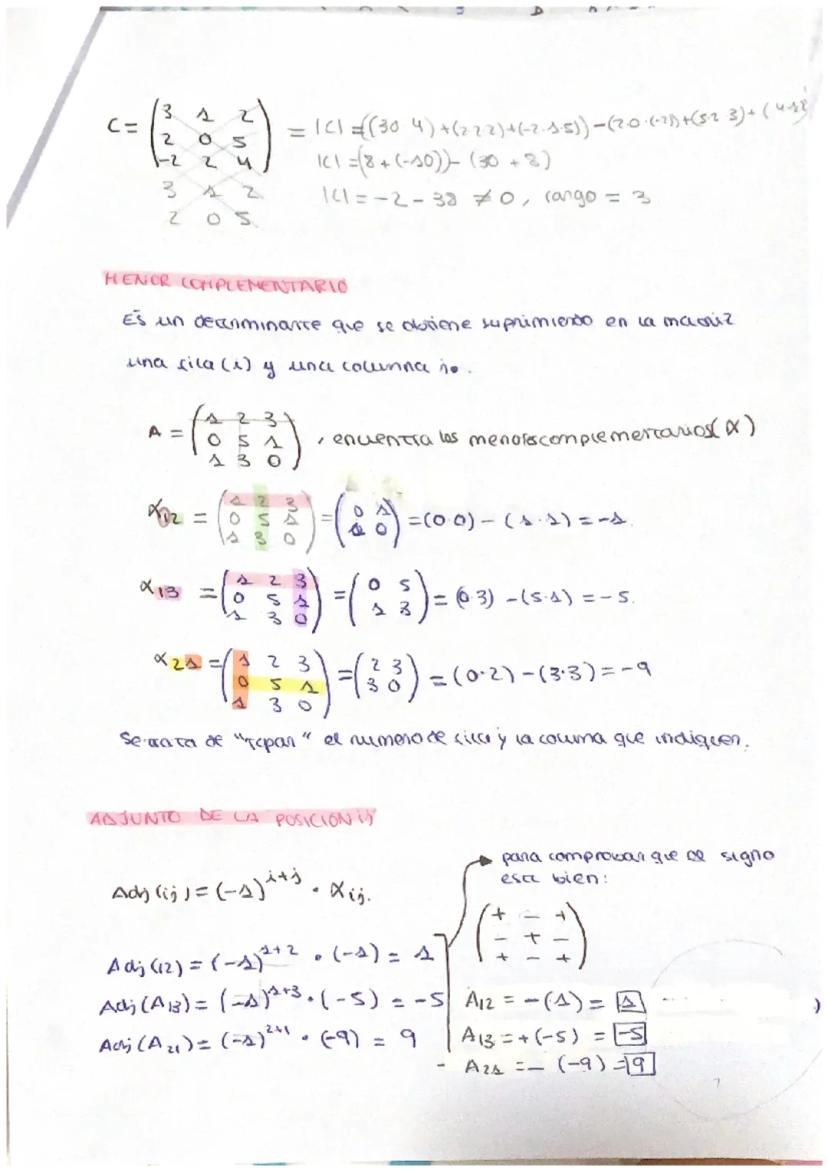 C = (3 1 2
2 0 5
-2 2 4)
3 1 2
2 0 5
= |C| = ((30 4)+(2 2 2)+(-2·1·5))-(2·0·(-2))+(5·2 3)+(4·1·2)
|C| = (8+(-10))-(30+8)
|C| = -2-38 ≠ 0, rango = 3
MENOR COMPLEMENTARIO
Es un determinante que se obtiene suprimiendo en la matriz
una fila (i) y una columna j.
A = (1 2 3
0 5 1
1 3 0), encuentra los menores complementarios (α)
α12 = (1 2 3
0 5 1
1 3 0) = (0 1
1 0) = (0·0) - (1·1) = -1
α13 = (1 2 3
0 5 1
1 3 0) = (0 5
1 3) = (0·3) - (5·1) = -5.
α21 = (1 2 3
0 5 1
1 3 0) = (2 3
3 0) = (0·2) - (3·3) = -9
Se trata de "tapar" el numero de fila y la columna que indiquen.
ADJUNTO DE LA POSICION ij
Adj (ij) = (-1)^i+j · αij.
Adj (12) = (-1)^1+2 · (-1) = 1
Adj (A13) = (-1)^1+3 · (-5) = -5
Adj (A21) = (-1)^2+1 · (-9) = 9
para comprobar que el signo
esta bien:
(+ - +
- + -
+ - +)
A12 = -(1) = 1
A13 = +(-5) = -5
- A21 = - (-9) = 9